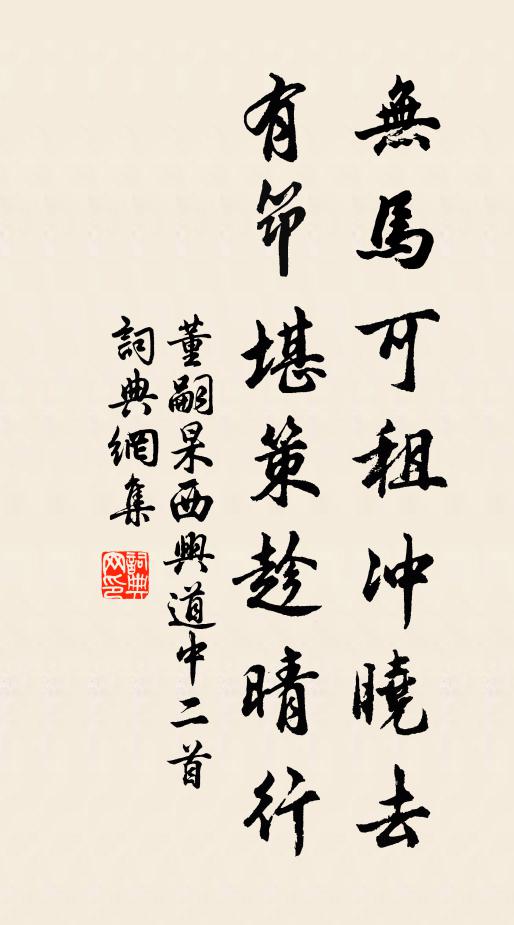 無馬可租冲曉去
有筇堪策趁晴行
董嗣杲西興道中二首
詞典網集
詞典网印